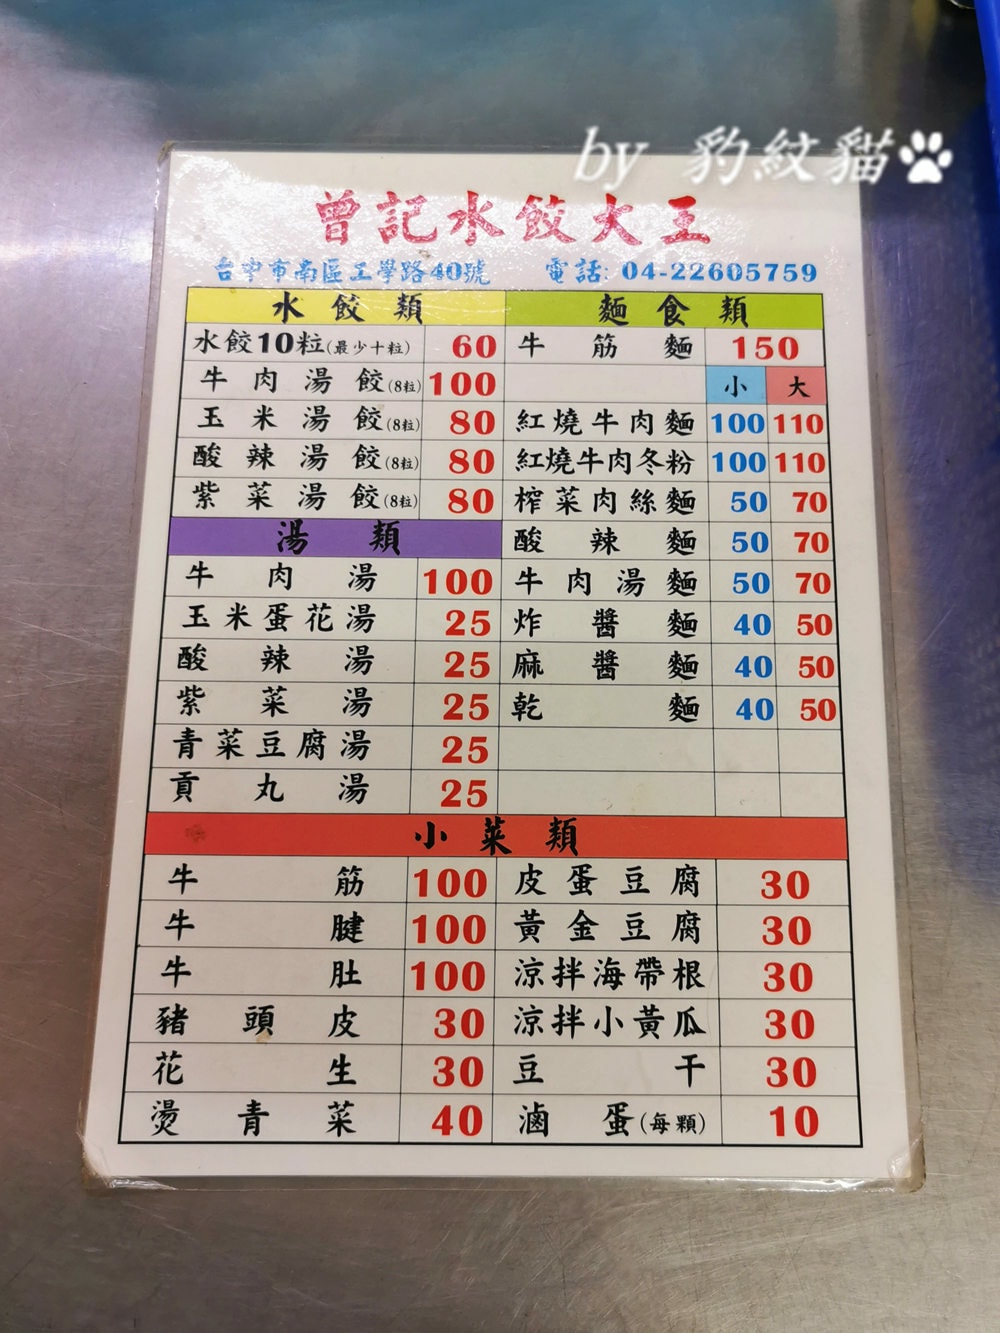 by 豹紋貓
曾記水餃大王
台中市南區工學路40號 電話: 04-22605759
水餃類
水餃10粒(最少十粒) 60
牛肉湯餃(8粒) 100
玉米湯餃(8粒) 80
酸辣湯餃(8粒) 80
紫菜湯餃(8粒) 80
湯類
牛肉湯 100
玉米蛋花湯 25
酸辣湯 25
紫菜湯 25
青菜豆腐湯 25
貢丸湯 25
麵食類
牛筋麵 150
小 大
紅燒牛肉麵 100 110
紅燒牛肉冬粉 100 110
榨菜肉絲麵 50 70
酸辣麵 50 70
牛肉湯麵 50 70
炸醬麵 40 50
麻醬麵 40 50
乾麵 40 50
小菜類
牛筋 100
牛腱 100
牛肚 100
豬頭皮 30
花生 30
燙青菜 40
皮蛋豆腐 30
黃金豆腐 30
涼拌海帶根 30
涼拌小黃瓜 30
豆干 30
滷蛋(每顆) 10